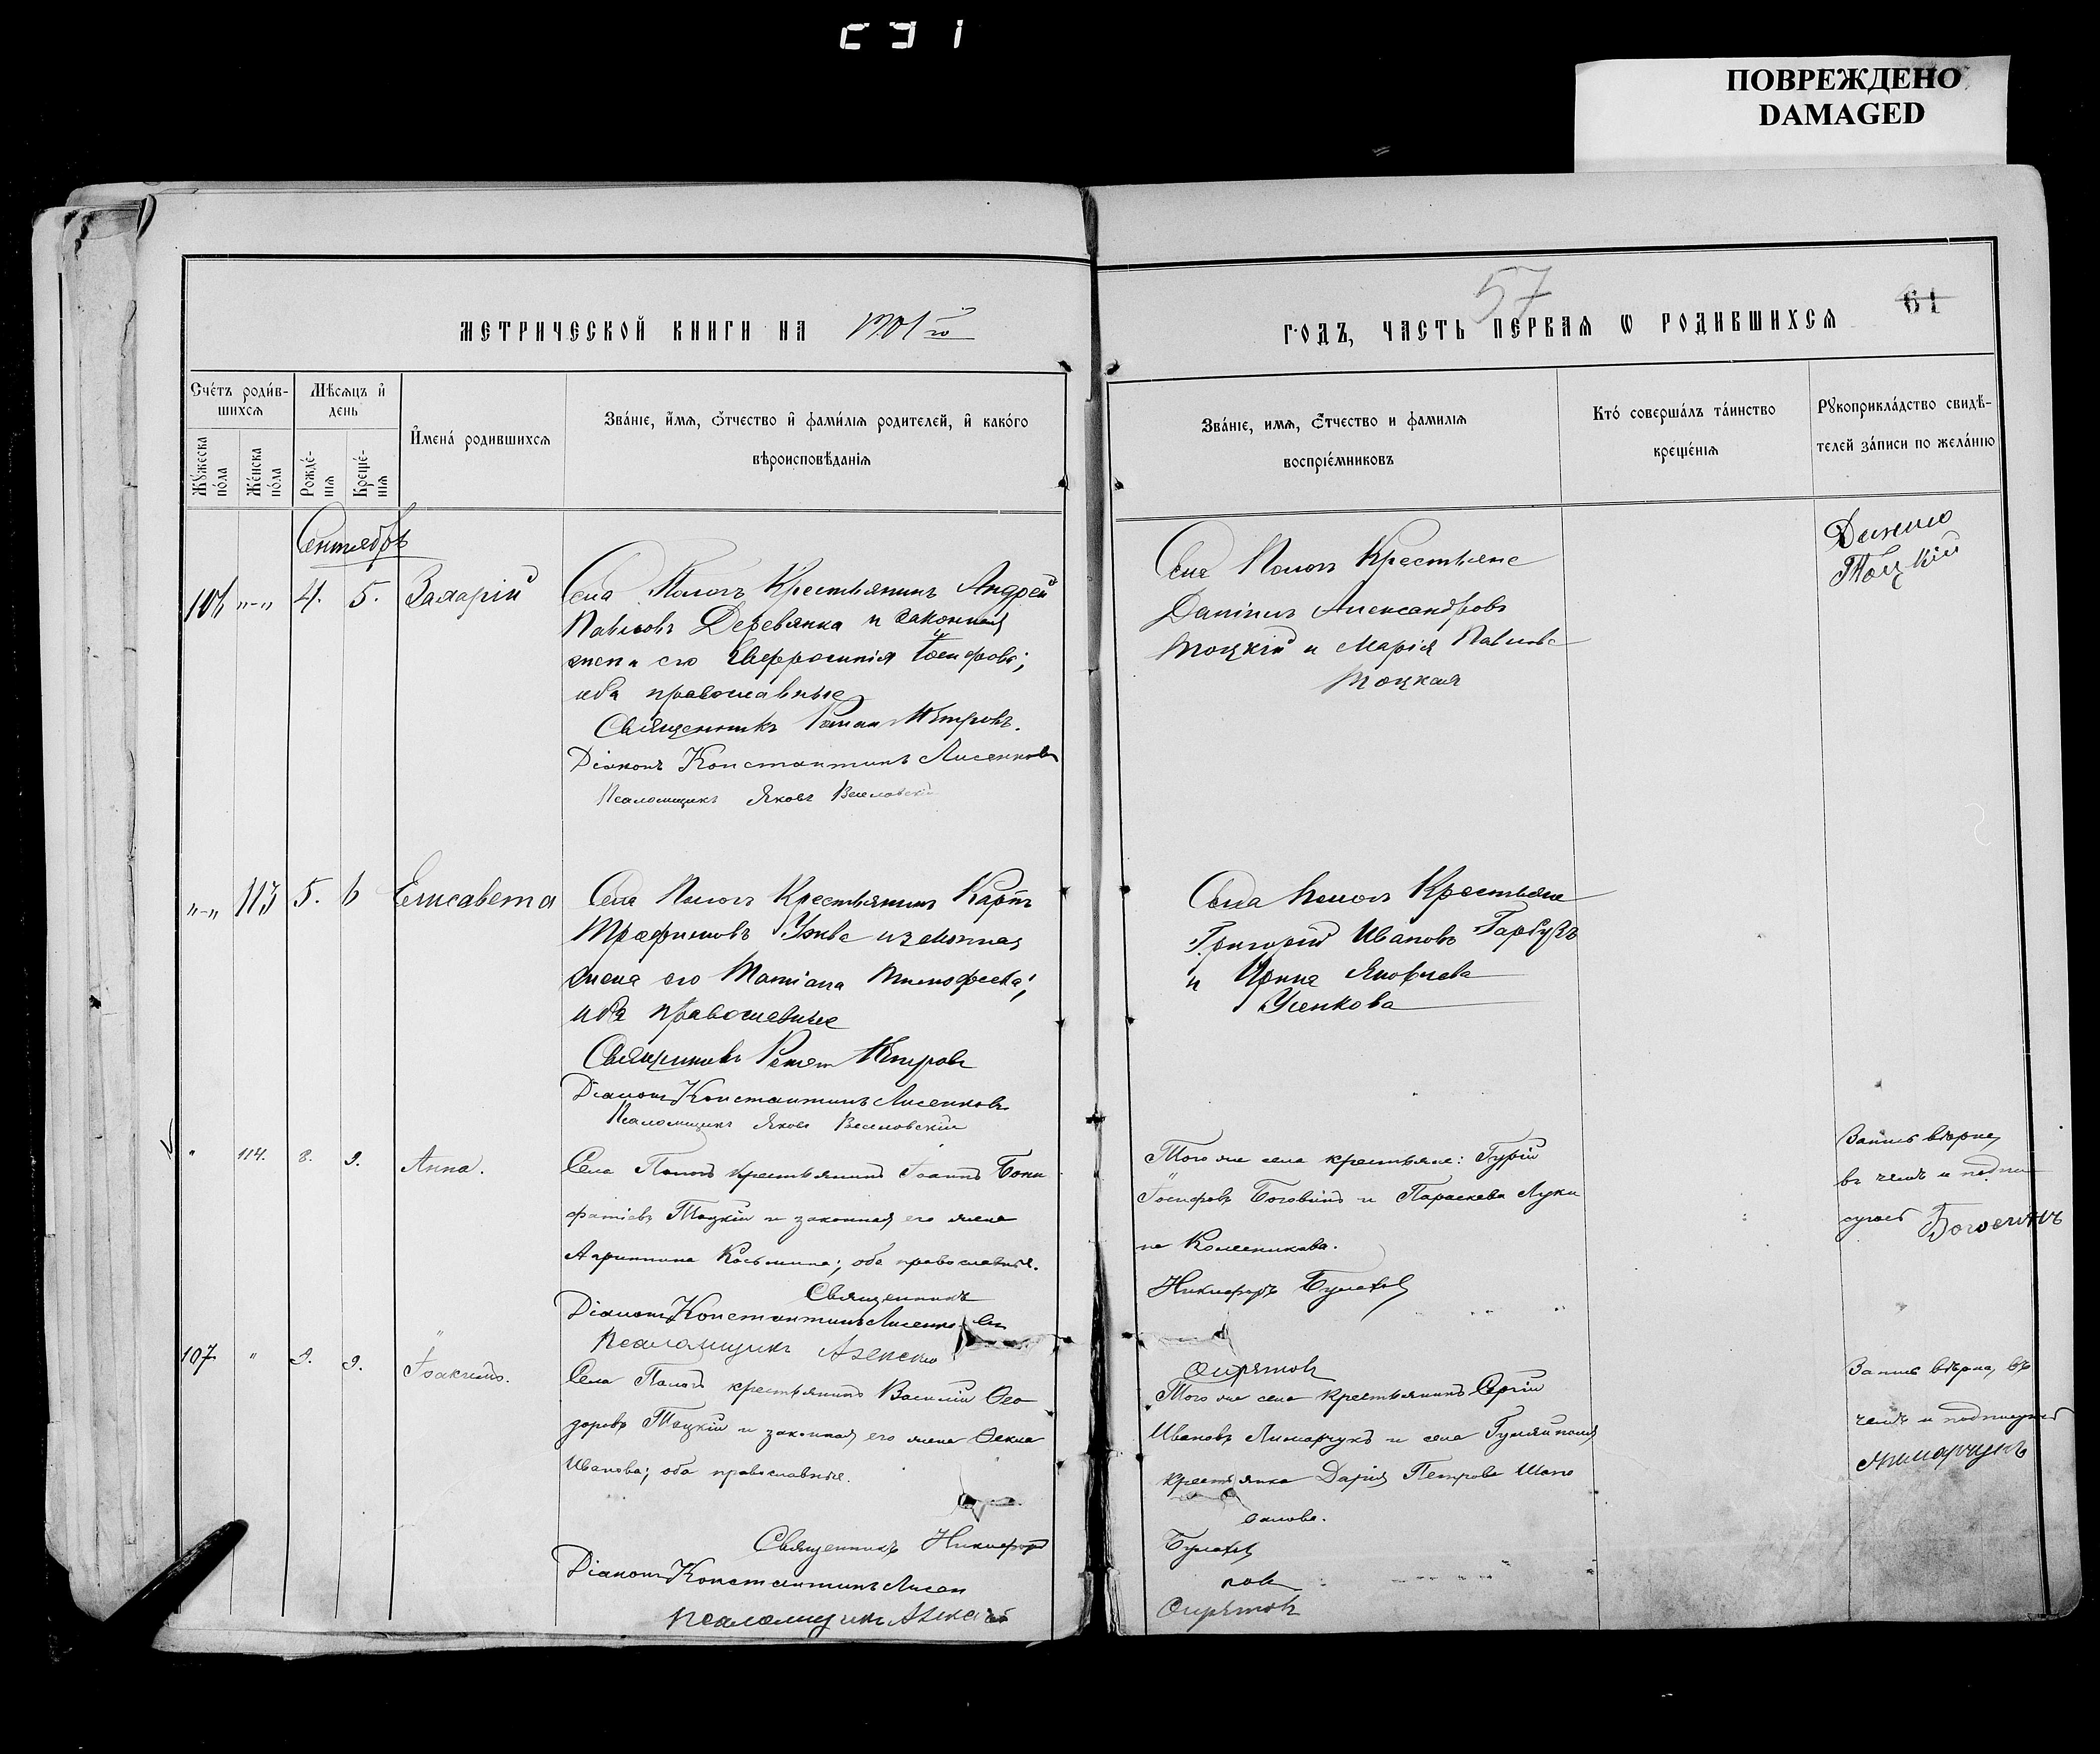 ПОВРЕЖДЕНО
DAMAGED
57
61
МЕТРИЧЕСКОЙ КНИГИ НА 1901 го
ГОДЪ, ЧАСТЬ ПЕРВАЯ Ѡ РОДИВШИХСЯ
Счетъ родив-
шихся
Мужеска
пола
Женска
пола
Мѣсяцъ и
день
Рожде-
нія
Креще-
нія
Имена родившихся
Званіе, имя, отчество и фамилія родителей, и какого
вѣроисповѣданія
Званіе, имя, отчество и фамилія
воспріемниковъ
Кто совершалъ таинство
крещенія
Рукоприкладство свидѣ-
телей записи по желанію
Сентябрь
106 "-" 4. 5. Захарій
Села Пологъ Крестьянинъ Андрей
Павловъ Деревянка и законная
жена его Евфросинія Іосифова;
оба православные
Священникъ Роман Пѣтровъ.
Діаконъ Константинъ Лисенковъ
Псаломщикъ Яковъ Веселовскій
Села Пологъ Крестьяне
Даниилъ Александровъ
Тоцкій и Марія Павлова
Тоцкая
Данило
Тоцкій
"-" 113 5. 6 Елисавета
Села Пологъ Крестьянинъ Карпъ
Трофимовъ и законная
жена его Татіана Тимофеева;
оба православные
Священникъ Роман Пѣтровъ
Діаконъ Константинъ Лисенковъ
Псаломщикъ Яковъ Веселовскій
Села Пологъ Крестьяне
Григорій Ивановъ Гарбузъ
и Ирина Яковлева
Усенкова
" 114. 8. 9. Анна.
Села Пологъ крестьянинъ Іоаннъ Бони
фатіевъ Тоцкій и законная его жена
Агриппина Косьмина; оба православные.
Священникъ
Діаконъ Константинъ Лисенковъ
Псаломщикъ Алексѣй
Того же села крестьяне: Гурій
Іосифовъ Боговинъ и Параскева Луки
на Колесникова.
Никифоръ Булахов
Запись вѣрна,
въ чемъ и подпи
суюсь
107 " 9. 9. Іоакимъ.
Села Пологъ крестьянинъ Василій Ѳео
доровъ Тоцкій и законная его жена Ѳекла
Иванова; оба православные.
Священникъ Никифоръ
Діаконъ Константинъ Лисен
Псаломщикъ Алексѣй
Того же села крестьянинъ Сергій
Ивановъ Лимарчукъ и села Гуляйполя
крестьянка Дарія Петрова Шапо
валова.
Булахов
ковъ
Запись вѣрна, въ
чемъ и подписуюсь
Лимарчукъ